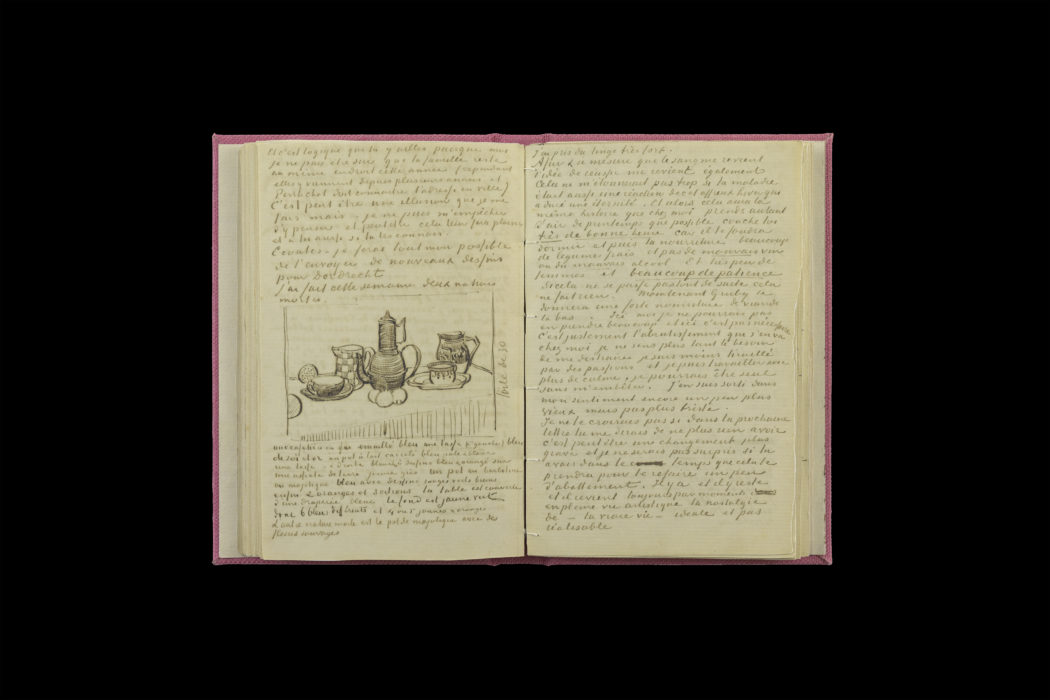 Et c'est logique que tu y ailles puisque moi
je ne puis être sûr que la famille reste
au même endroit cette année (cependant
elles y viennent depuis plusieurs années et
doit connaitre l'adresse en ville)
C'est peut être une illusion que je me
fais mais – je ne puis m'empêcher
d'y penser et peut être cela leur fera plaisir
et à toi aussi si tu les connais.
Ecoutes – je ferai tout mon possible
de t'envoyer de nouveaux dessins
pour Dordrecht
J'ai fait cette semaine deux natures
mortes.
toile de 30
une cafetière en fer emaillé bleu une tasse (à gauche) bleu
de roi et or un pot à lait carrelé bleu pale et blanc
une tasse – à droite blanche à dessins bleus & orangés sur
une assiette de terre jaune gris un pot en barbotine
ou majolique bleu avec dessins rouges verts bruns
enfin 2 oranges et 3 citrons. la table est couverte
d'une draperie bleue. le fond est jaune vert
donc 6 bleus différents et 4 ou 5 jaunes & orangés
L'autre nature morte est le pot de majolique avec des
fleurs sauvages
très fort.
A fur & à mesure que le sang me revient
l'idée de reussir me revient également
Cela ne m'étonnerait pas trop si ta maladie
était aussi une réaction de cet affreux hiver qui
a duré une éternité. Et alors cela aura la
même histoire que chez moi prends autant
d'air de printemps que possible couche toi
très de bonne heure car il te faudra
dormir et puis la nourriture beaucoup
de legumes frais et pas de mauvais vin
ou du mauvais alcool Et très peu de
femmes et beaucoup de patience
Si cela ne se passe pas tout de suite cela
ne fait rien. Maintenant Gruby te
donnera une forte nourriture de viande
là bas. Ici moi je ne pourrais pas
en prendre beaucoup et ici c'est pas nécessaire
C'est justement l'abrutissement qui s'en va
chez moi je ne sens plus tant le besoin
de me distraire je suis moins tiraillé
par des passions et je puis travailler avec
plus de calme, je pourrais être seul
sans m'embêter. J'en suis sorti dans
mon sentiment encore un peu plus
vieux mais pas plus triste.
Je ne te croirais pas si dans ta prochaine
lettre tu me dirais de ne plus rien avoir
c'est peut être un changement plus
grave et je ne serais pas surpris si tu
avais dans le temps que cela te
prendra pour te refaire un peu
d'abattement. Il y a et il y reste
et il revient toujours par moments
en pleine vie artistique la nostalgie
de – la vraie vie – idéale et pas
réalisable